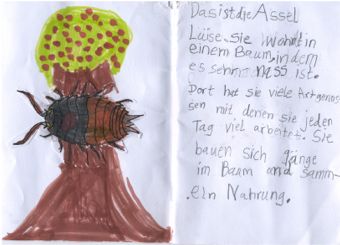 Das ist die Assel
Luise. sie wohnt in
einem Baum, in dem
es sehr nass ist.
Dort hat sie viele Artgenos
sen mit denen sie jeden
Tag viel arbeitet. Sie
bauen sich gänge
im Baum und samm-
eln Nahrung.